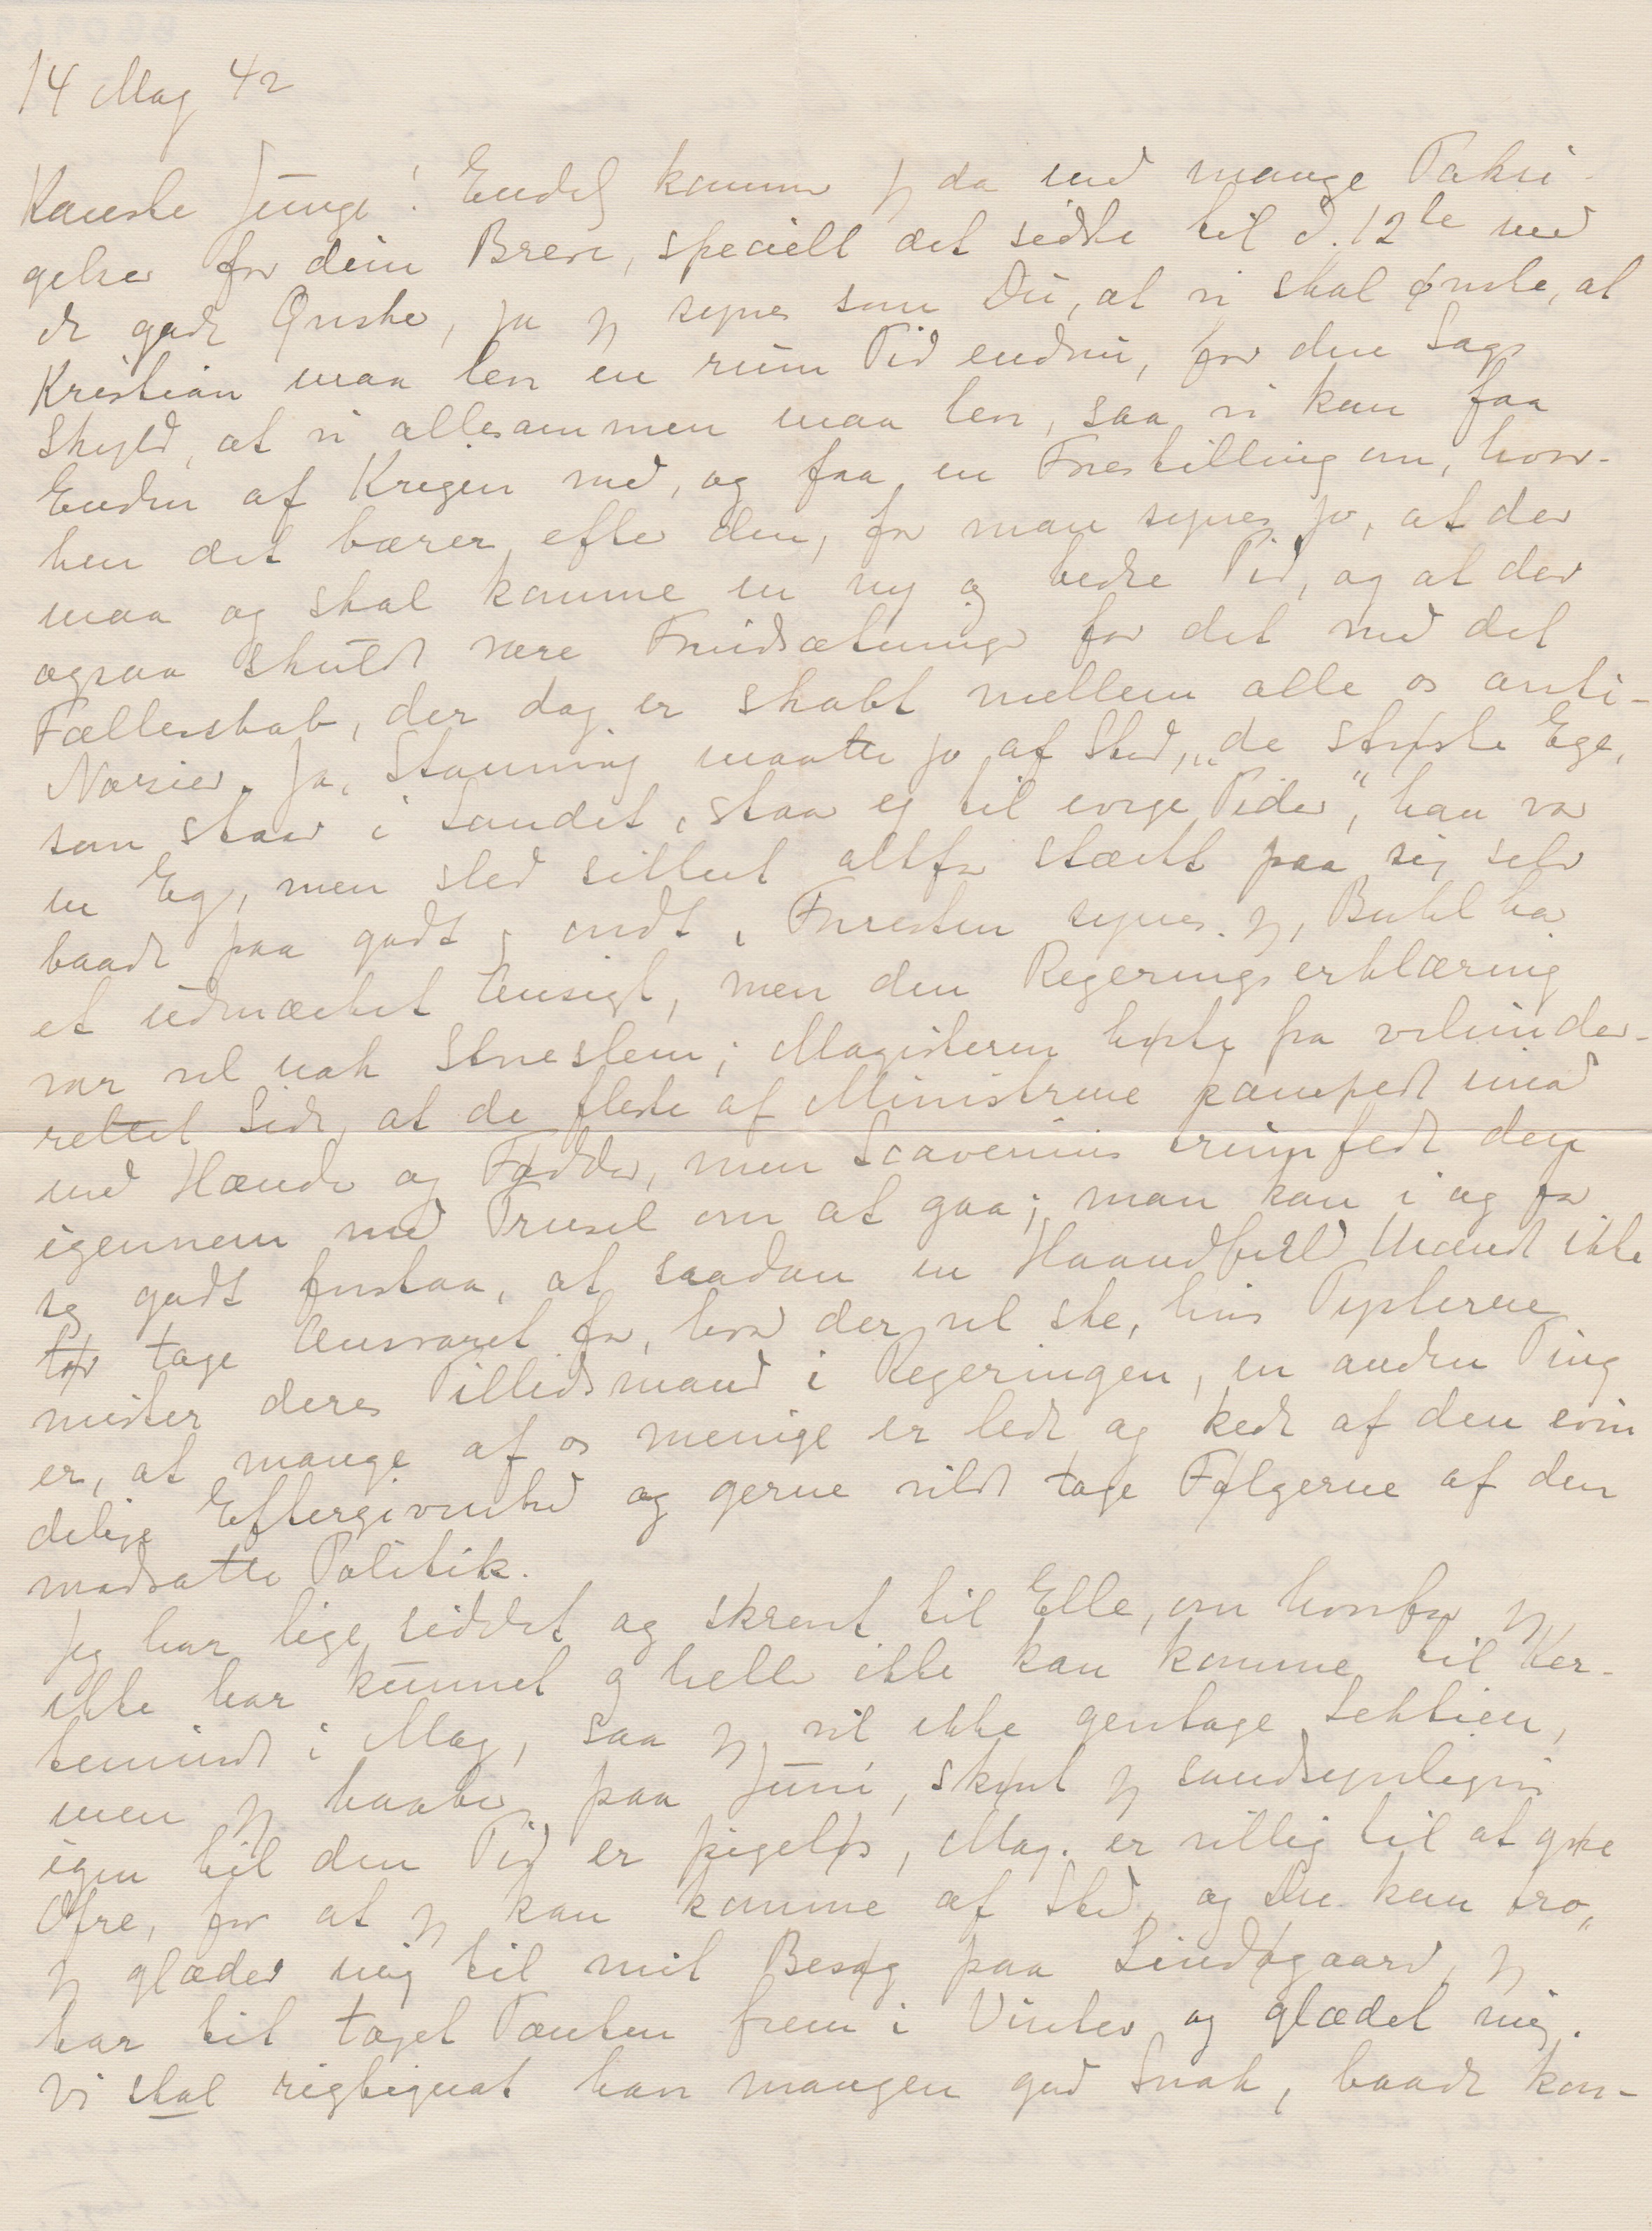 14 Maj 42
Kæreste Junge! Endelig kommer jeg da med mange Taksi-
gelser for dine Breve, specielt det sidste til d. 12te med
de gode Ønsker, ja jeg synes som Du, at vi skal ønske, at
Kristian maa leve en rum Tid endnu, for den Sags
Skyld, at vi allesammen maa leve, saa vi kan faa
Enden af Krigen med, og faa en Forestilling om, hvor-
hen det bærer efter den, for man synes jo, at der
maa og skal komme en ny og bedre Tid, og at der
ogsaa skulde være Forudsætninger for det med det
Fællesskab, der dog er skabt mellem alle os anti-
Nazier. Ja, Stauning maatte jo af Sted, "de største Ege,
som staar i Landet, staar ej til evige Tider", han var
en Eg, men sled sikkert altfor stærkt paa sig selv
baade paa godt og ondt. Forresten synes jeg, Buhl har
et udmærket Ansigt, men den Regeringserklæring
var vel nok Streslem; Magisteren hørte fra velunder-
rettet Side, at de fleste af Ministrene kæmpede imod
med Hænder og Fødder, men Scavenius trumfede den
igennem med Trusel om at gaa; man kan i og for
sig godt forstaa, at saadan en Haandfuld Mænd ikke
tør tage Ansvaret for, hvad der vil ske, hvis Tyskerne
mister deres Tillidsmand i Regeringen, en anden Ting
er, at mange af os menige er lede og kede af den evin-
delige Eftergivenhed og gerne vilde tage Følgerne af den
modsatte Politik.
Jeg har lige siddet og skrevet til Elle, om hvorfor jeg
ikke har kunnet og heller ikke kan komme til Ker-
teminde i Maj, saa jeg vil ikke gentage Lektien,
men jeg haaber paa Juni, skønt jeg sandsynligvis
igen til den Tid er pigeløs, Mag. er villig til at yde
Ofre, for at jeg kan komme af Sted, og Du kan tro,
jeg glæder mig til mit Besøg paa Lindøgaard, jeg
har tit taget Tanken frem i Vinter og glædet mig.
Vi skal rigtignok have mangen god Snak, baade kon-